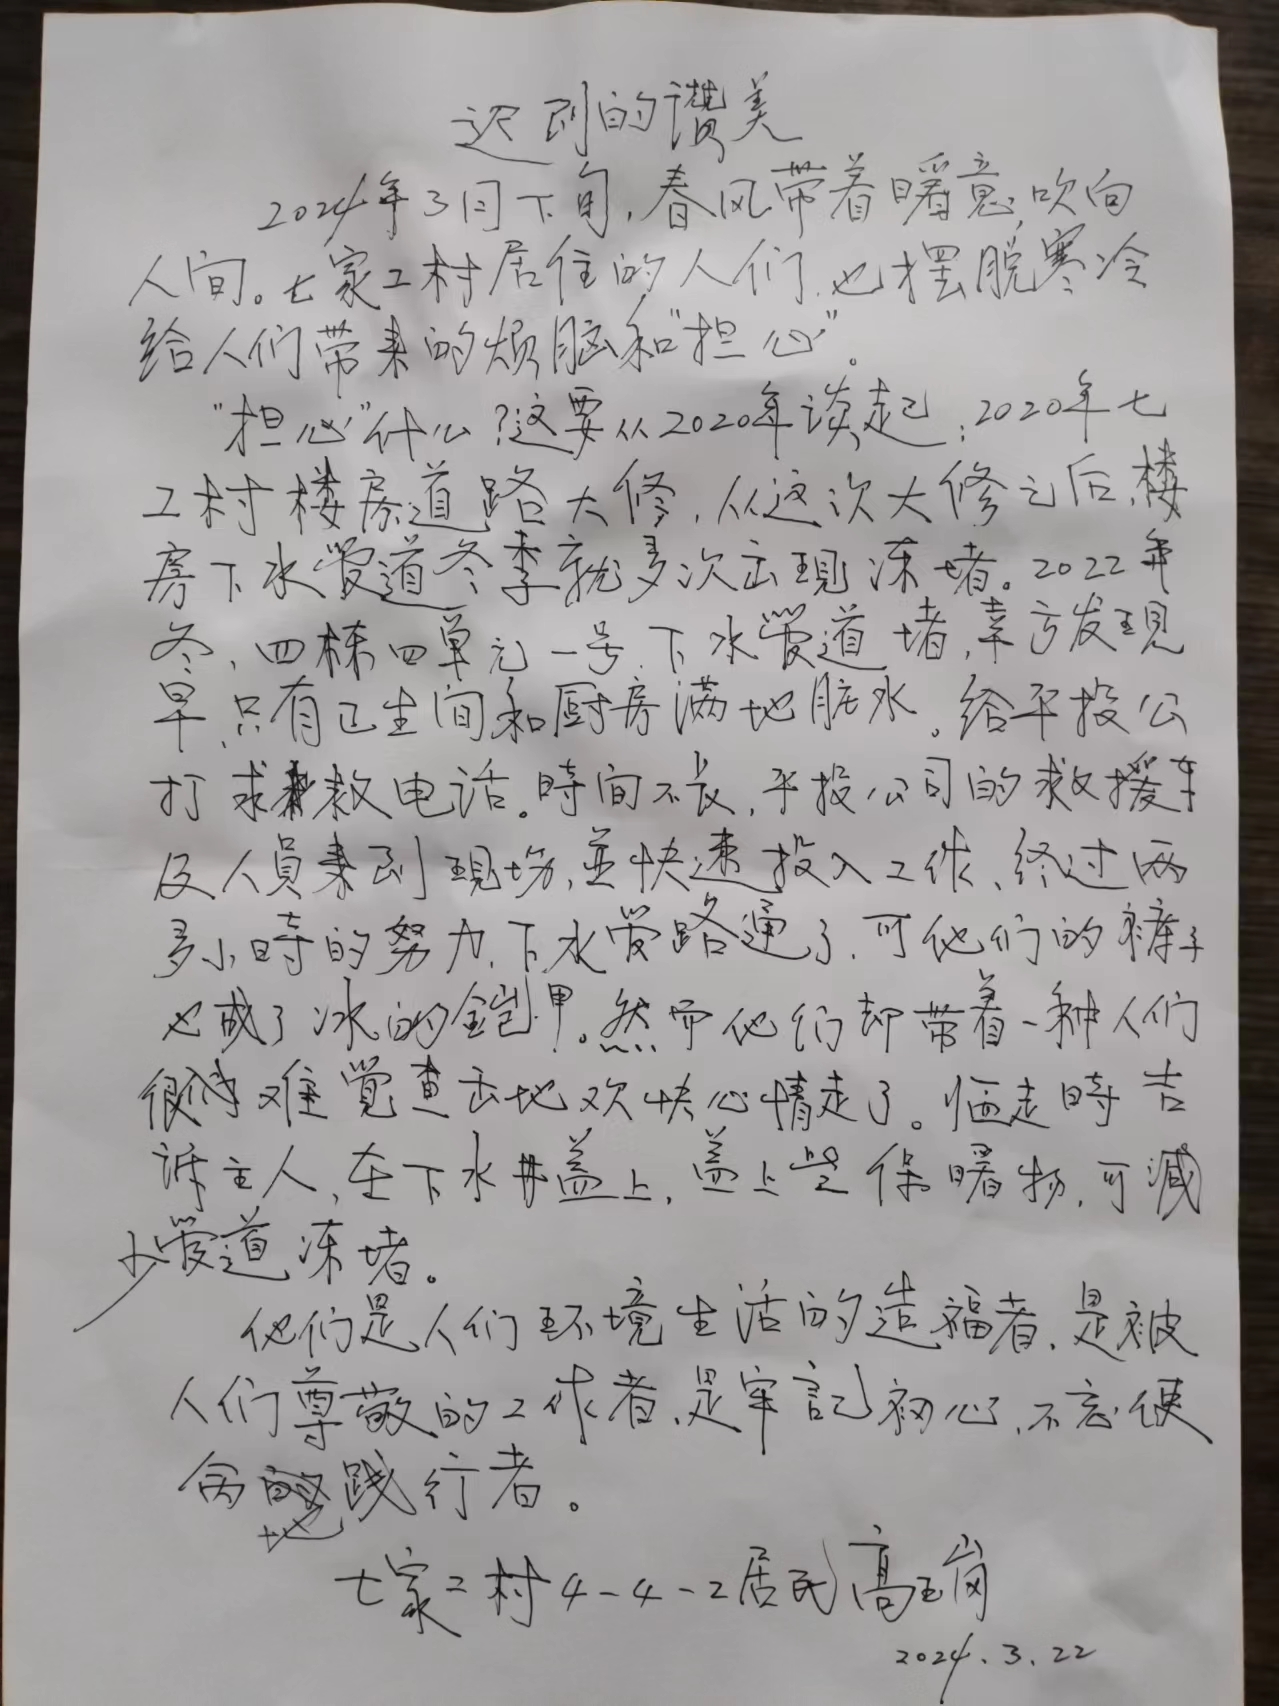 迟到的讚美
2024年3月下旬，春风带着暖意，吹向
人间。七家工村居住的人们，也摆脱寒冷
给人们带来的烦脑和“担心”。
“担心”什么？这要从2020年谈起；2020年七
工村楼房道路大修，从这次大修之后，楼
房下水管道冬季就多次出现冻堵。2022年
冬，四栋四单元一号，下水管道堵，幸亏发现
早，只有卫生间和厨房满地脏水。给平投公
打求救电话。時间不长，平投公司的救援车
及人員来到現场，並快速投入工作，经过两
多小時的努力，下水管路通了，可他们的裤子
也成了冰的鎧甲。然而他们却带着一种人们
很难覺查出地欢快心情走了。临走時告
诉主人，在下水井盖上，盖上些保暖物，可減
少管道冻堵。
他们是人们环境生活的造福者，是被
人们尊敬的工作者，是牢記初心，不忘使
命地践行者。
七家工村4-4-2居民高玉岗
2024.3.22